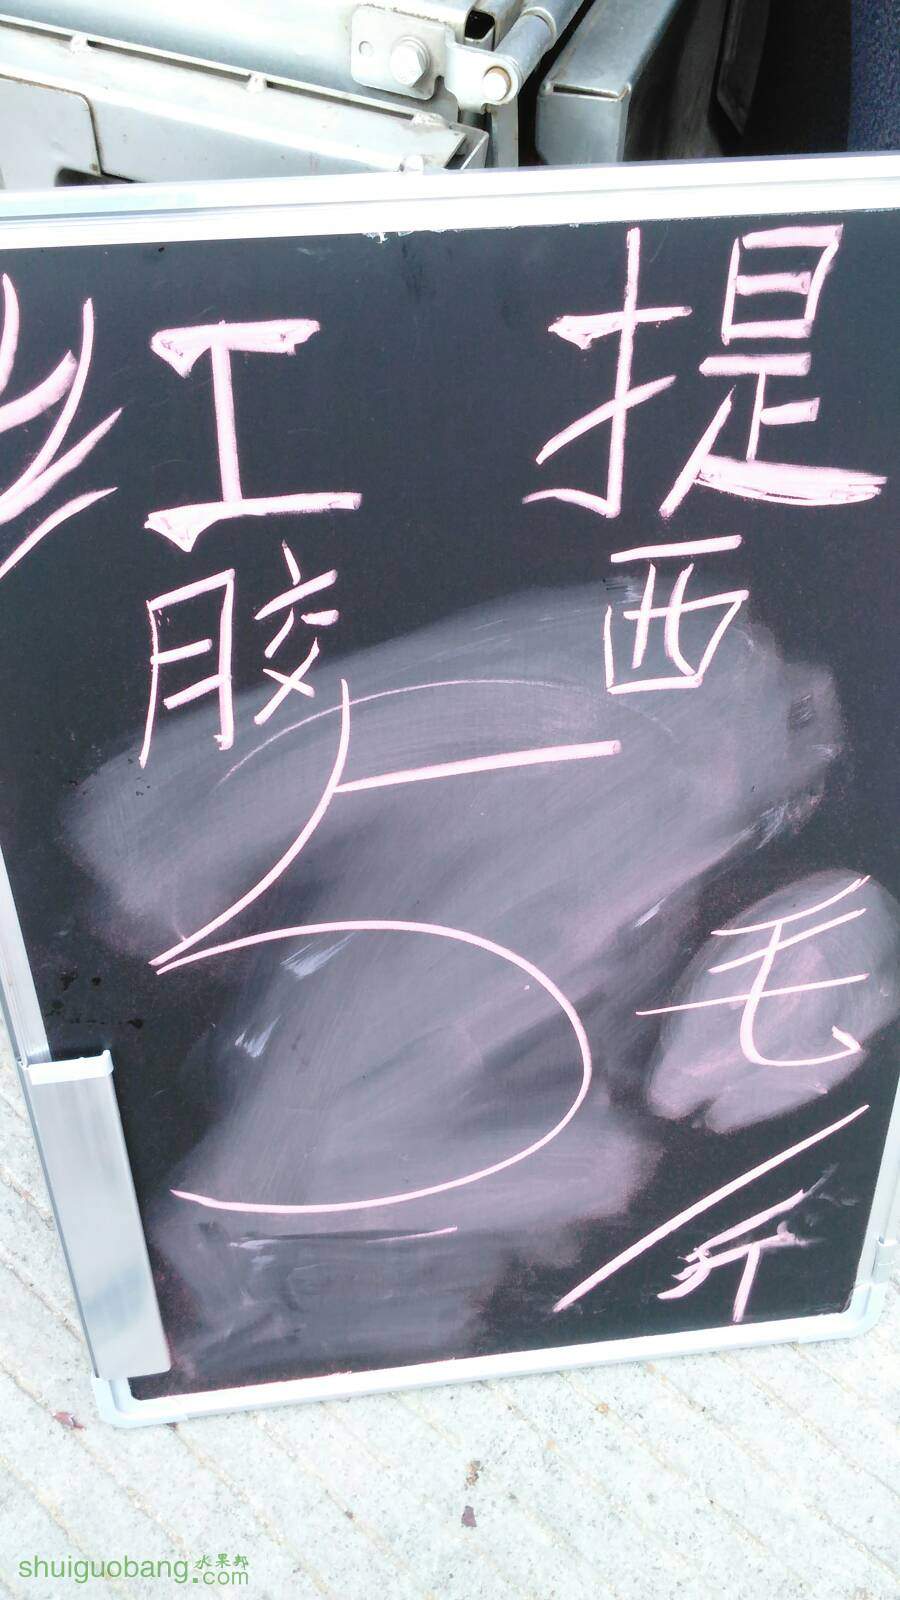 红提
胶西
5毛/斤
shuiguobang.水果邦com